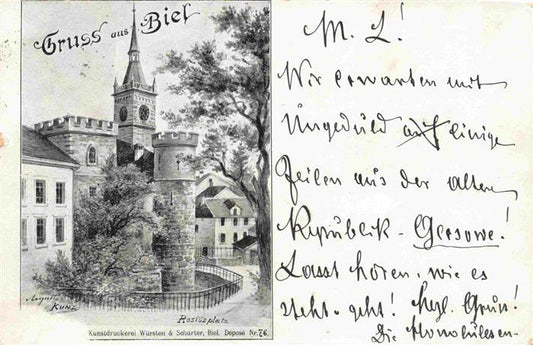 Gruss aus Biel
M. L!
Wir erwarten mit
Ungeduld auf einige
Zeilen aus der alten
Republik - Gersowe!
Lasst hören, wie es
steht - geht! Hzl. Gruss!
Die
August
Kunz
Rosiusplatz
Kunstdruckerei Würsten & Schürter, Biel. Déposé Nr. 76.